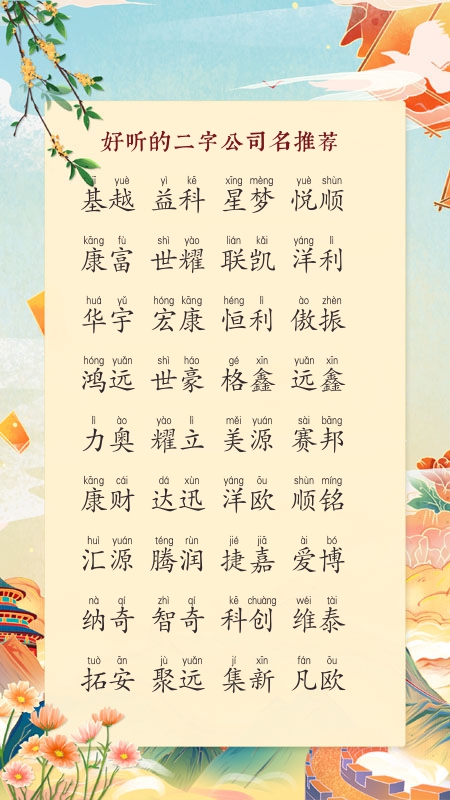 好听的二字公司名推荐
jī yuè yì kē xīng mèng yuè shùn
基越 益科 星梦 悦顺
kāng fù shì yào lián kǎi yáng lì
康富 世耀 联凯 洋利
huá yǔ hóng kāng héng lì ào zhèn
华宇 宏康 恒利 傲振
hóng yuǎn shì háo gé xīn yuǎn xīn
鸿远 世豪 格鑫 远鑫
lì ào yào lì měi yuán sài bāng
力奥 耀立 美源 赛邦
kāng cái dá xùn yáng ōu shùn míng
康财 达迅 洋欧 顺铭
huì yuán téng rùn jié jiā ài bó
汇源 腾润 捷嘉 爱博
nà qí zhì qí kē chuàng wéi tài
纳奇 智奇 科创 维泰
tuò ān jù yuǎn jí xīn fán ōu
拓安 聚远 集新 凡欧